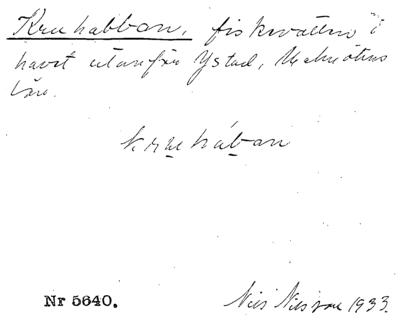 Kruhabban, fiskvatten i
havet utanför Ystad, Malmöhus
län.
kruehában
Nr 5640.
Nils Nilsson 1933.